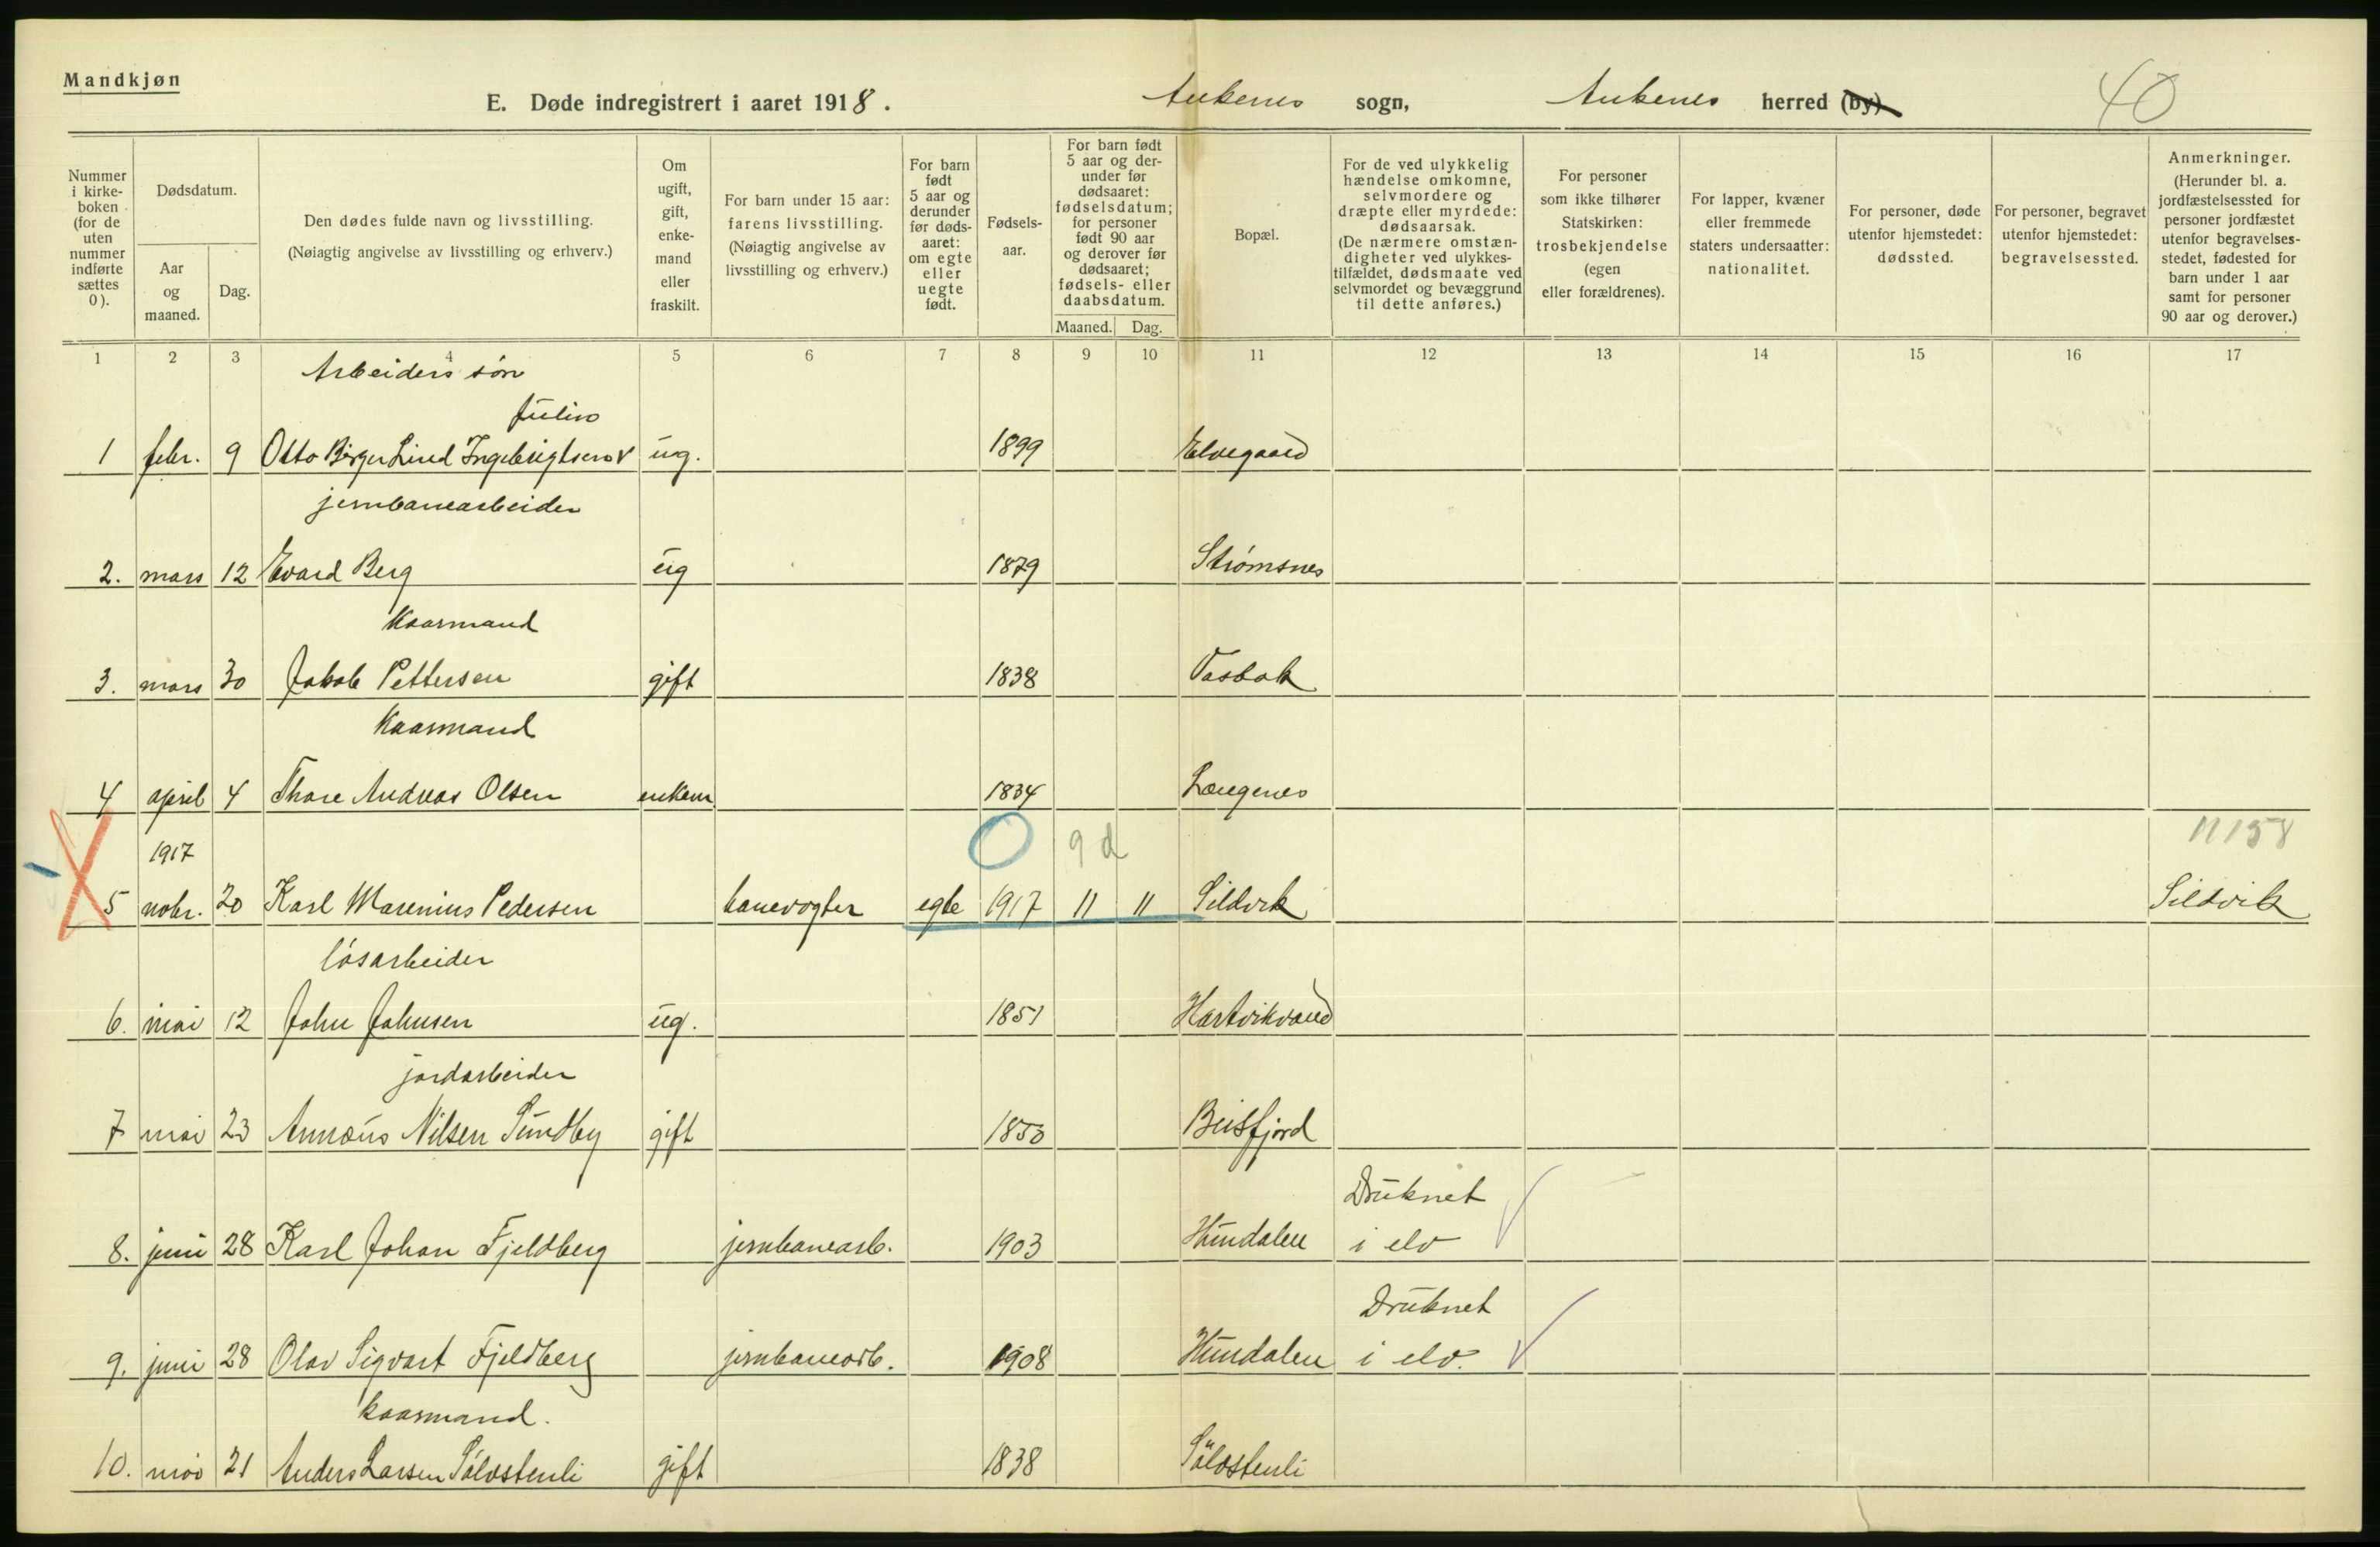 Mandkjøn
E. Døde indregistrert i aaret 1918. Ankenes sogn, Ankenes herred (by) 40
Nummer i kirkeboken (for de uten nummer indførte sættes 0).
Dødsdatum.
Aar og maaned.
Dag.
Den dødes fulde navn og livsstilling.
(Nøiagtig angivelse av livsstilling og erhverv.)
Om ugift, gift, enkemand eller fraskilt.
For barn under 15 aar: farens livsstilling.
(Nøiagtig angivelse av livsstilling og erhverv.)
For barn født 5 aar og derunder før dødsaaret: om egte eller uegte født.
Fødselsaar.
For barn født 5 aar og derunder før dødsaaret: fødselsdatum; for personer født 90 aar og derover før dødsaaret; fødsels- eller daabsdatum.
Maaned. Dag.
Bopæl.
For de ved ulykkelig hændelse omkomne, selvmordere og dræpte eller myrdede: dødsaarsak.
(De nærmere omstændigheter ved ulykkestilfældet, dødsmaate ved selvmordet og bevæggrund til dette anføres.)
For personer som ikke tilhører Statskirken: trosbekjendelse (egen eller forældrenes).
For lapper, kvæner eller fremmede staters undersaatter: nationalitet.
For personer, døde utenfor hjemstedet: dødssted.
For personer, begravet utenfor hjemstedet: begravelsessted.
Anmerkninger.
(Herunder bl. a. jordfæstelsessted for personer jordfæstet utenfor begravelsesstedet, fødested for barn under 1 aar samt for personer 90 aar og derover.)
1 2 3 4 5 6 7 8 9 10 11 12 13 14 15 16 17
Arbeiders søn
Julius
1 febr. 9 Otto Birger Lind Ingebrigtsen v ug. 1899 Elvegaard
jernbanearbeider
2. mars 12 Evard Berg ug 1879 Strømsnes
Kaarmand
3. mars 30 Jakob Pettersen gift 1838 Vasbak
Kaarmand
4 april 4 Thore Andreas Olsen enkem 1834 Længenes
1917 0 9 d 11158
5 nobr. 20 Karl Marenius Pedersen banevogter egte 1917 11 11 Sildvik Sildvik
løsarbeider
6. mai 12 John Johnsen ug. 1851 Hartvikvand
jordarbeider
7 mai 23 Annæus Nilsen Sundby gift 1850 Beisfjord
Druknet
8. juni 28 Karl Johan Fjeldberg jernbanearb. 1903 Hundalen i elv
Druknet
9. juni 28 Olav Sigvart Fjeldberg jernbanearb. 1908 Hundalen i elv.
kaarmand.
10. mai 21 Anders Larsen Sølvstenli gift 1838 Sølvstenli